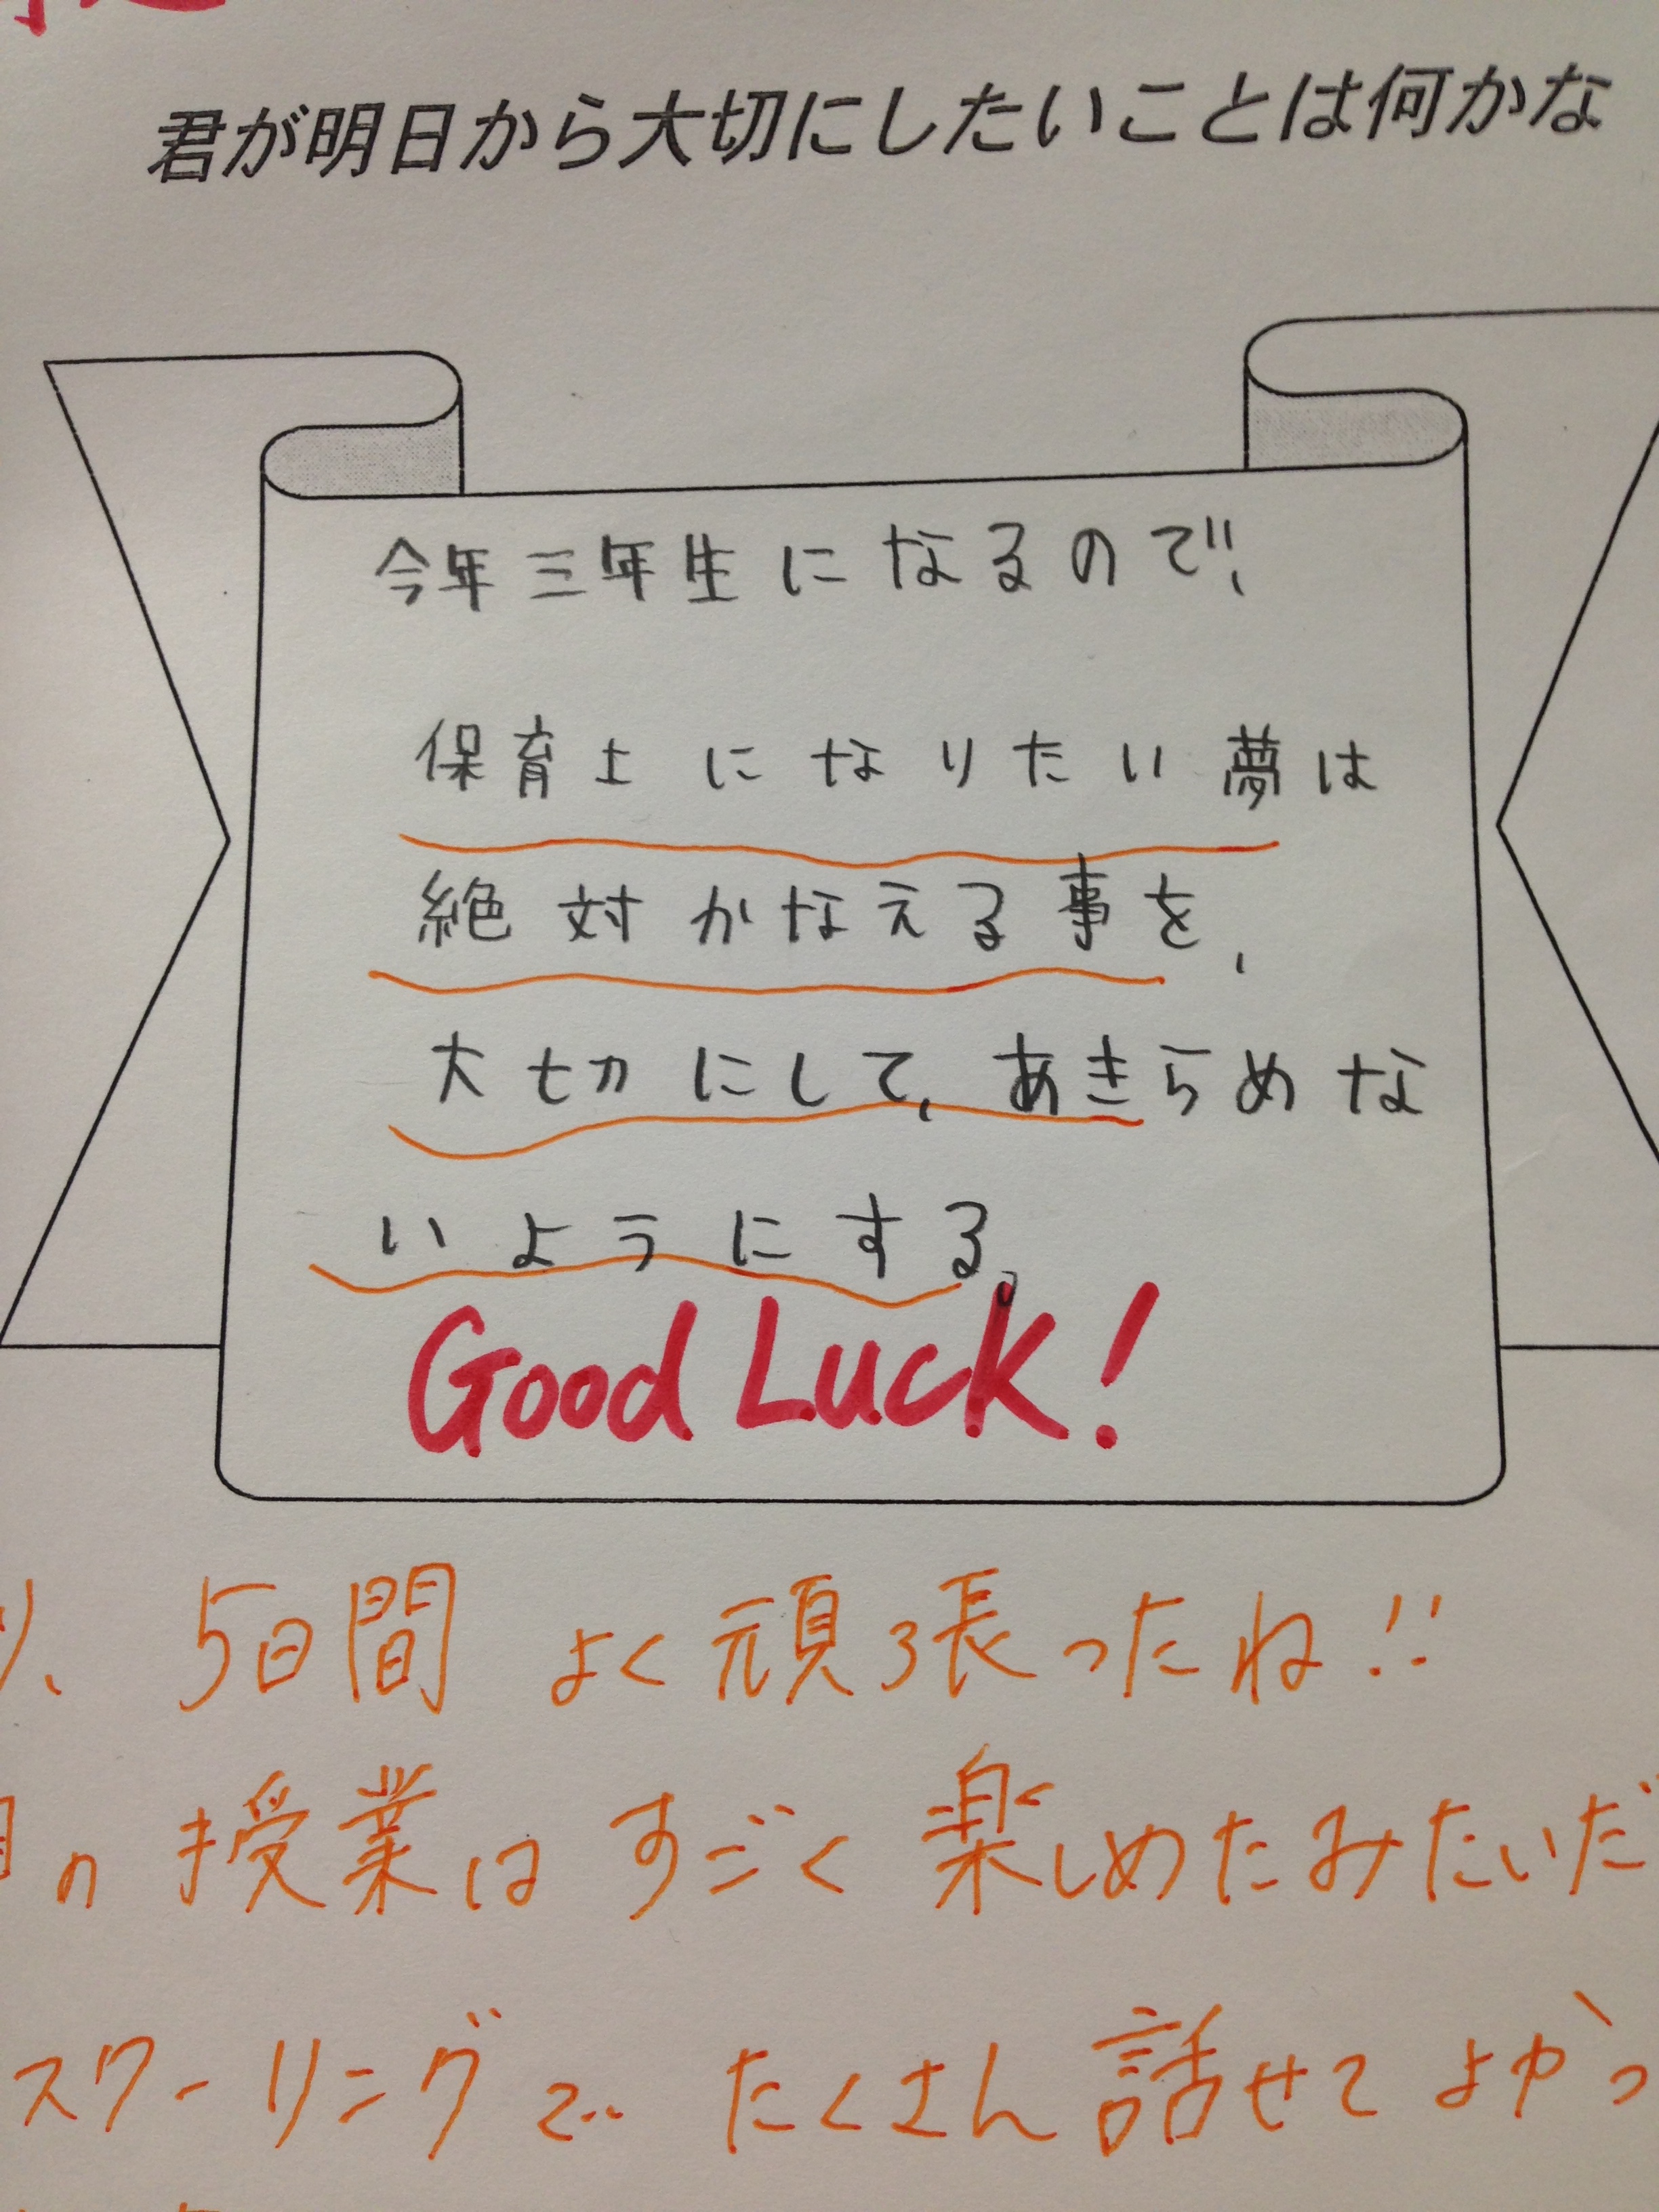 君が明日から大切にしたいことは何かな
今年三年生になるので、
保育士になりたい夢は
絶対かなえる事を、
大切にして、あきらめな
いようにする。
Good Luck!
り、5日間 よく頑張ったね!!
の授業はすごく楽しめたみたいだ
スクーリングで たくさん話せてよかっ